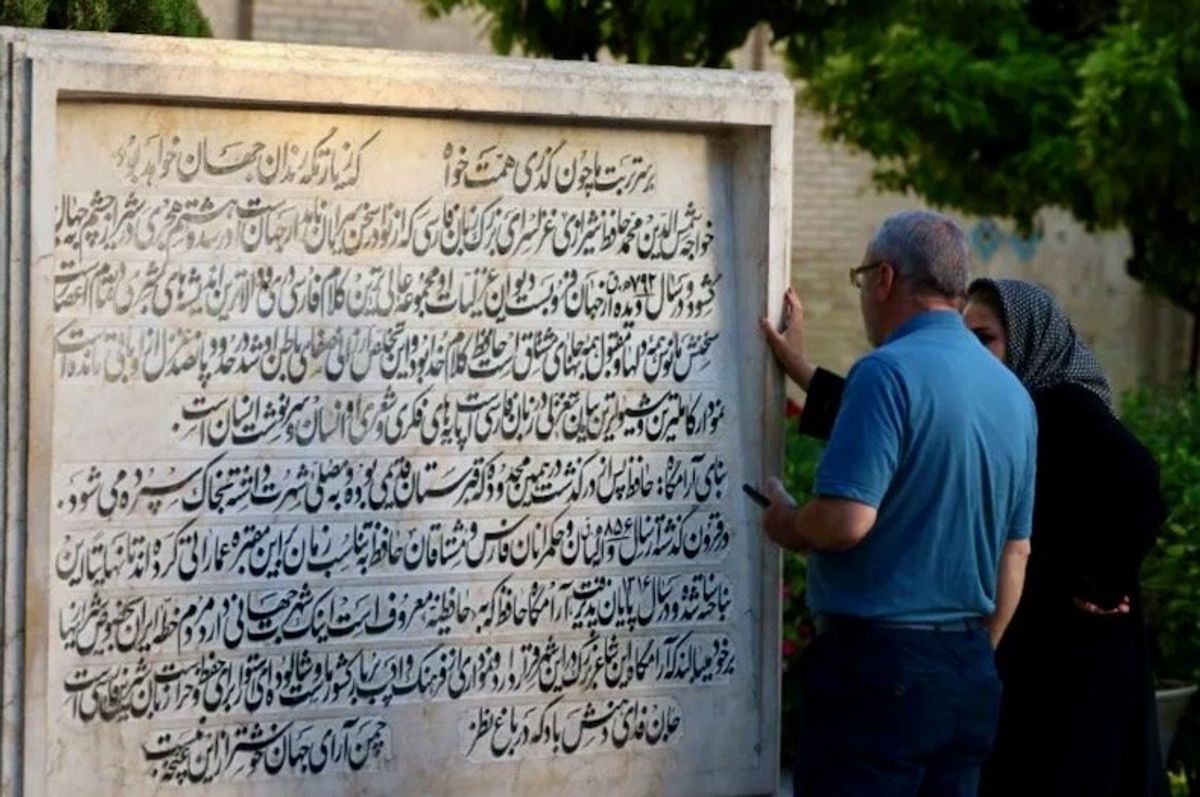 بر سر تربت ما چون گذری همت خواه که زیارتگه رندان جهان خواهد بود
خواجه شمس الدین محمد حافظ شیرازی غزلسرای بزرگ زبان فارسی که از نوادر سخن سرایان نامدار جهان است در سده هشتم هجری در شیراز چشم بجهان
گشود و در سال ۷۹۲ ه.ق دیده از جهان فرو بست دیوان غزلیات او مجموعه عالی ترین کلام فارسی دری و والاترین اندیشه های بشری در تمام اعصار است
سخنش مانوس همه دلها و مقبول همه جانهای مشتاق است حافظ کلام خدا بود و این تخلص از آن صفای باطن او شد در حدود پانصد غزل از او باقی مانده است
نمودار کاملترین و شیواترین بیان تغزلی در زبان فارسی است پایه های فکری و شعری او انسان و سرنوشت انسان است.
بنای آرامگاه: حافظ پس از درگذشت در همین محدوده که قبرستان قدیمی بوده و به مصلی شهرت داشته بخاک سپرده می شود.
در قرون گذشته از سال ۸۵۶ ه.ق والیان و حکمرانان فارس و مشتاقان حافظ به تناسب زمان بر این مقبره عماراتی کرده اند تا نهایتا این
بنا ساخته شد و در سال ۱۳۱۶ پایان پذیرفت، آرامگاه حافظ که به «حافظیه» معروف است اینک شهرت جهانی دارد مردم خطه ایران بخصوص شیرازیها
بر خود میبالند که آرامگاه این شاعر بزرگ در این شهر قرار دارد و نموداری از فرهنگ و ادب دیرپای کشور ماست و شالوده ای استوار برای حفظ و حراست زبان شیرین فارسی است
جان فدای دهنش باد که در باغ نظر
چمن آرای جهان خوشتر از این غنچه نبست